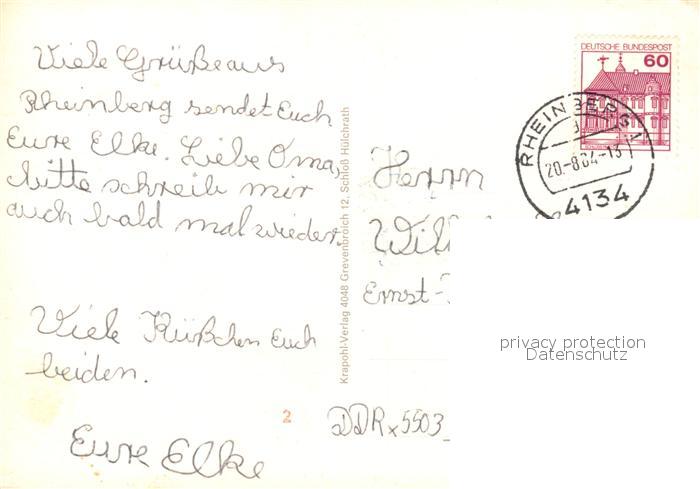 Viele Grüße aus
Rheinberg sendet Euch
Eure Elke. Liebe Oma,
bitte schreib mir
auch bald mal wieder.
Viele Küßchen Euch
beiden.
Eure Elke
2
Krapohl-Verlag 4048 Grevenbroich 12, Schloß Hülchrath
DEUTSCHE BUNDESPOST
60
RHEINBERG 1
20.-8.84-13
4134
Herrn
Ernst-
DDRx5503
privacy protection
Datenschutz